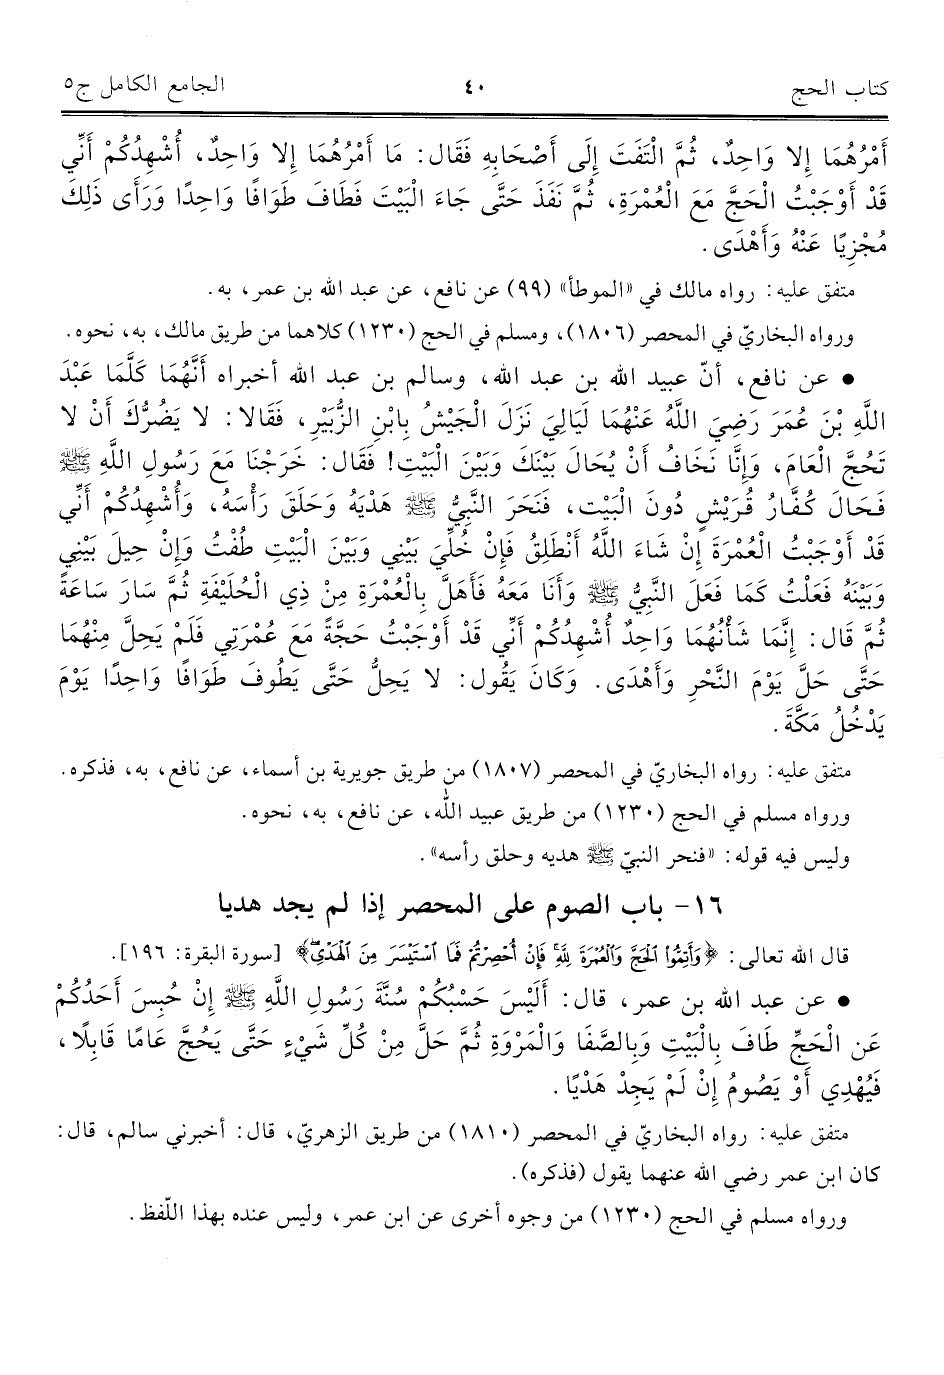 كتاب الحج ٤٠ الجامع الكامل ج٥
أَمْرُهُمَا إِلا وَاحِدٌ، ثُمَّ الْتَفَتَ إِلَى أَصْحَابِهِ فَقَال: مَا أَمْرُهُمَا إِلا وَاحِدٌ، أُشْهِدُكُمْ أَنِّي
قَدْ أَوْجَبْتُ الْحَجَّ مَعَ الْعُمْرَةِ، ثُمَّ نَفَذَ حَتَّى جَاءَ الْبَيْتَ فَطَافَ طَوَافًا وَاحِدًا وَرَأَى ذَلِكَ
مُجْزِيًا عَنْهُ وَأَهْدَى.
متفق عليه: رواه مالك في «الموطأ» (٩٩) عن نافع، عن عبد الله بن عمر، به.
ورواه البخاريّ في المحصر (١٨٠٦)، ومسلم في الحج (١٢٣٠) كلاهما من طريق مالك، به، نحوه.
• عن نافع، أنّ عبيد الله بن عبد الله، وسالم بن عبد الله أخبراه أَنَّهُمَا كَلَّمَا عَبْدَ
اللَّهِ بْنَ عُمَرَ رَضِيَ اللَّهُ عَنْهُمَا لَيَالِيَ نَزَلَ الْجَيْشُ بِابْنِ الزُّبَيْرِ، فَقَالا: لا يَضُرُّكَ أَنْ لا
تَحُجَّ الْعَامَ، وَإِنَّا نَخَافُ أَنْ يُحَالَ بَيْنَكَ وَبَيْنَ الْبَيْتِ! فَقَال: خَرَجْنَا مَعَ رَسُولِ اللَّهِ ﷺ
فَحَالَ كُفَّارُ قُرَيْشٍ دُونَ الْبَيْت، فَنَحَرَ النَّبِيُّ ﷺ هَدْيَهُ وَحَلَقَ رَأْسَهُ، وَأُشْهِدُكُمْ أَنِّي
قَدْ أَوْجَبْتُ الْعُمْرَةَ إِنْ شَاءَ اللَّهُ أَنْطَلِقُ فَإِنْ خُلِّيَ بَيْنِي وَبَيْنَ الْبَيْتِ طُفْتُ وَإِنْ حِيلَ بَيْنِي
وَبَيْنَهُ فَعَلْتُ كَمَا فَعَلَ النَّبِيُّ ﷺ وَأَنَا مَعَهُ فَأَهَلَّ بِالْعُمْرَةِ مِنْ ذِي الْحُلَيْفَةِ ثُمَّ سَارَ سَاعَةً
ثُمَّ قَال: إِنَّمَا شَأْنُهُمَا وَاحِدٌ أُشْهِدُكُمْ أَنِّي قَدْ أَوْجَبْتُ حَجَّةً مَعَ عُمْرَتِي فَلَمْ يَحِلَّ مِنْهُمَا
حَتَّى حَلَّ يَوْمَ النَّحْرِ وَأَهْدَى. وَكَانَ يَقُول: لا يَحِلُّ حَتَّى يَطُوفَ طَوَافًا وَاحِدًا يَوْمَ
يَدْخُلُ مَكَّةَ.
متفق عليه: رواه البخاريّ في المحصر (١٨٠٧) من طريق جويرية بن أسماء، عن نافع، به، فذكره.
ورواه مسلم في الحج (١٢٣٠) من طريق عبيد الله، عن نافع، به، نحوه.
وليس فيه قوله: «فنحر النبيّ ﷺ هديه وحلق رأسه».
١٦- باب الصوم على المحصر إذا لم يجد هديا
قال الله تعالى: ﴿وَأَتِمُّوا۟ ٱلْحَجَّ وَٱلْعُمْرَةَ لِلَّهِ ۚ فَإِنْ أُحْصِرْتُمْ فَمَا ٱسْتَيْسَرَ مِنَ ٱلْهَدْىِ ۖ﴾ [سورة البقرة: ١٩٦].
• عن عبد الله بن عمر، قال: أَلَيْسَ حَسْبُكُمْ سُنَّةَ رَسُولِ اللَّهِ ﷺ إِنْ حُبِسَ أَحَدُكُمْ
عَنِ الْحَجِّ طَافَ بِالْبَيْتِ وَبِالصَّفَا وَالْمَرْوَةِ ثُمَّ حَلَّ مِنْ كُلِّ شَيْءٍ حَتَّى يَحُجَّ عَامًا قَابِلًا،
فَيُهْدِي أَوْ يَصُومُ إِنْ لَمْ يَجِدْ هَدْيًا.
متفق عليه: رواه البخاريّ في المحصر (١٨١٠) من طريق الزهريّ، قال: أخبرني سالم، قال:
كان ابن عمر رضي الله عنهما يقول (فذكره).
ورواه مسلم في الحج (١٢٣٠) من وجوه أخرى عن ابن عمر، وليس عنده بهذا اللّفظ.